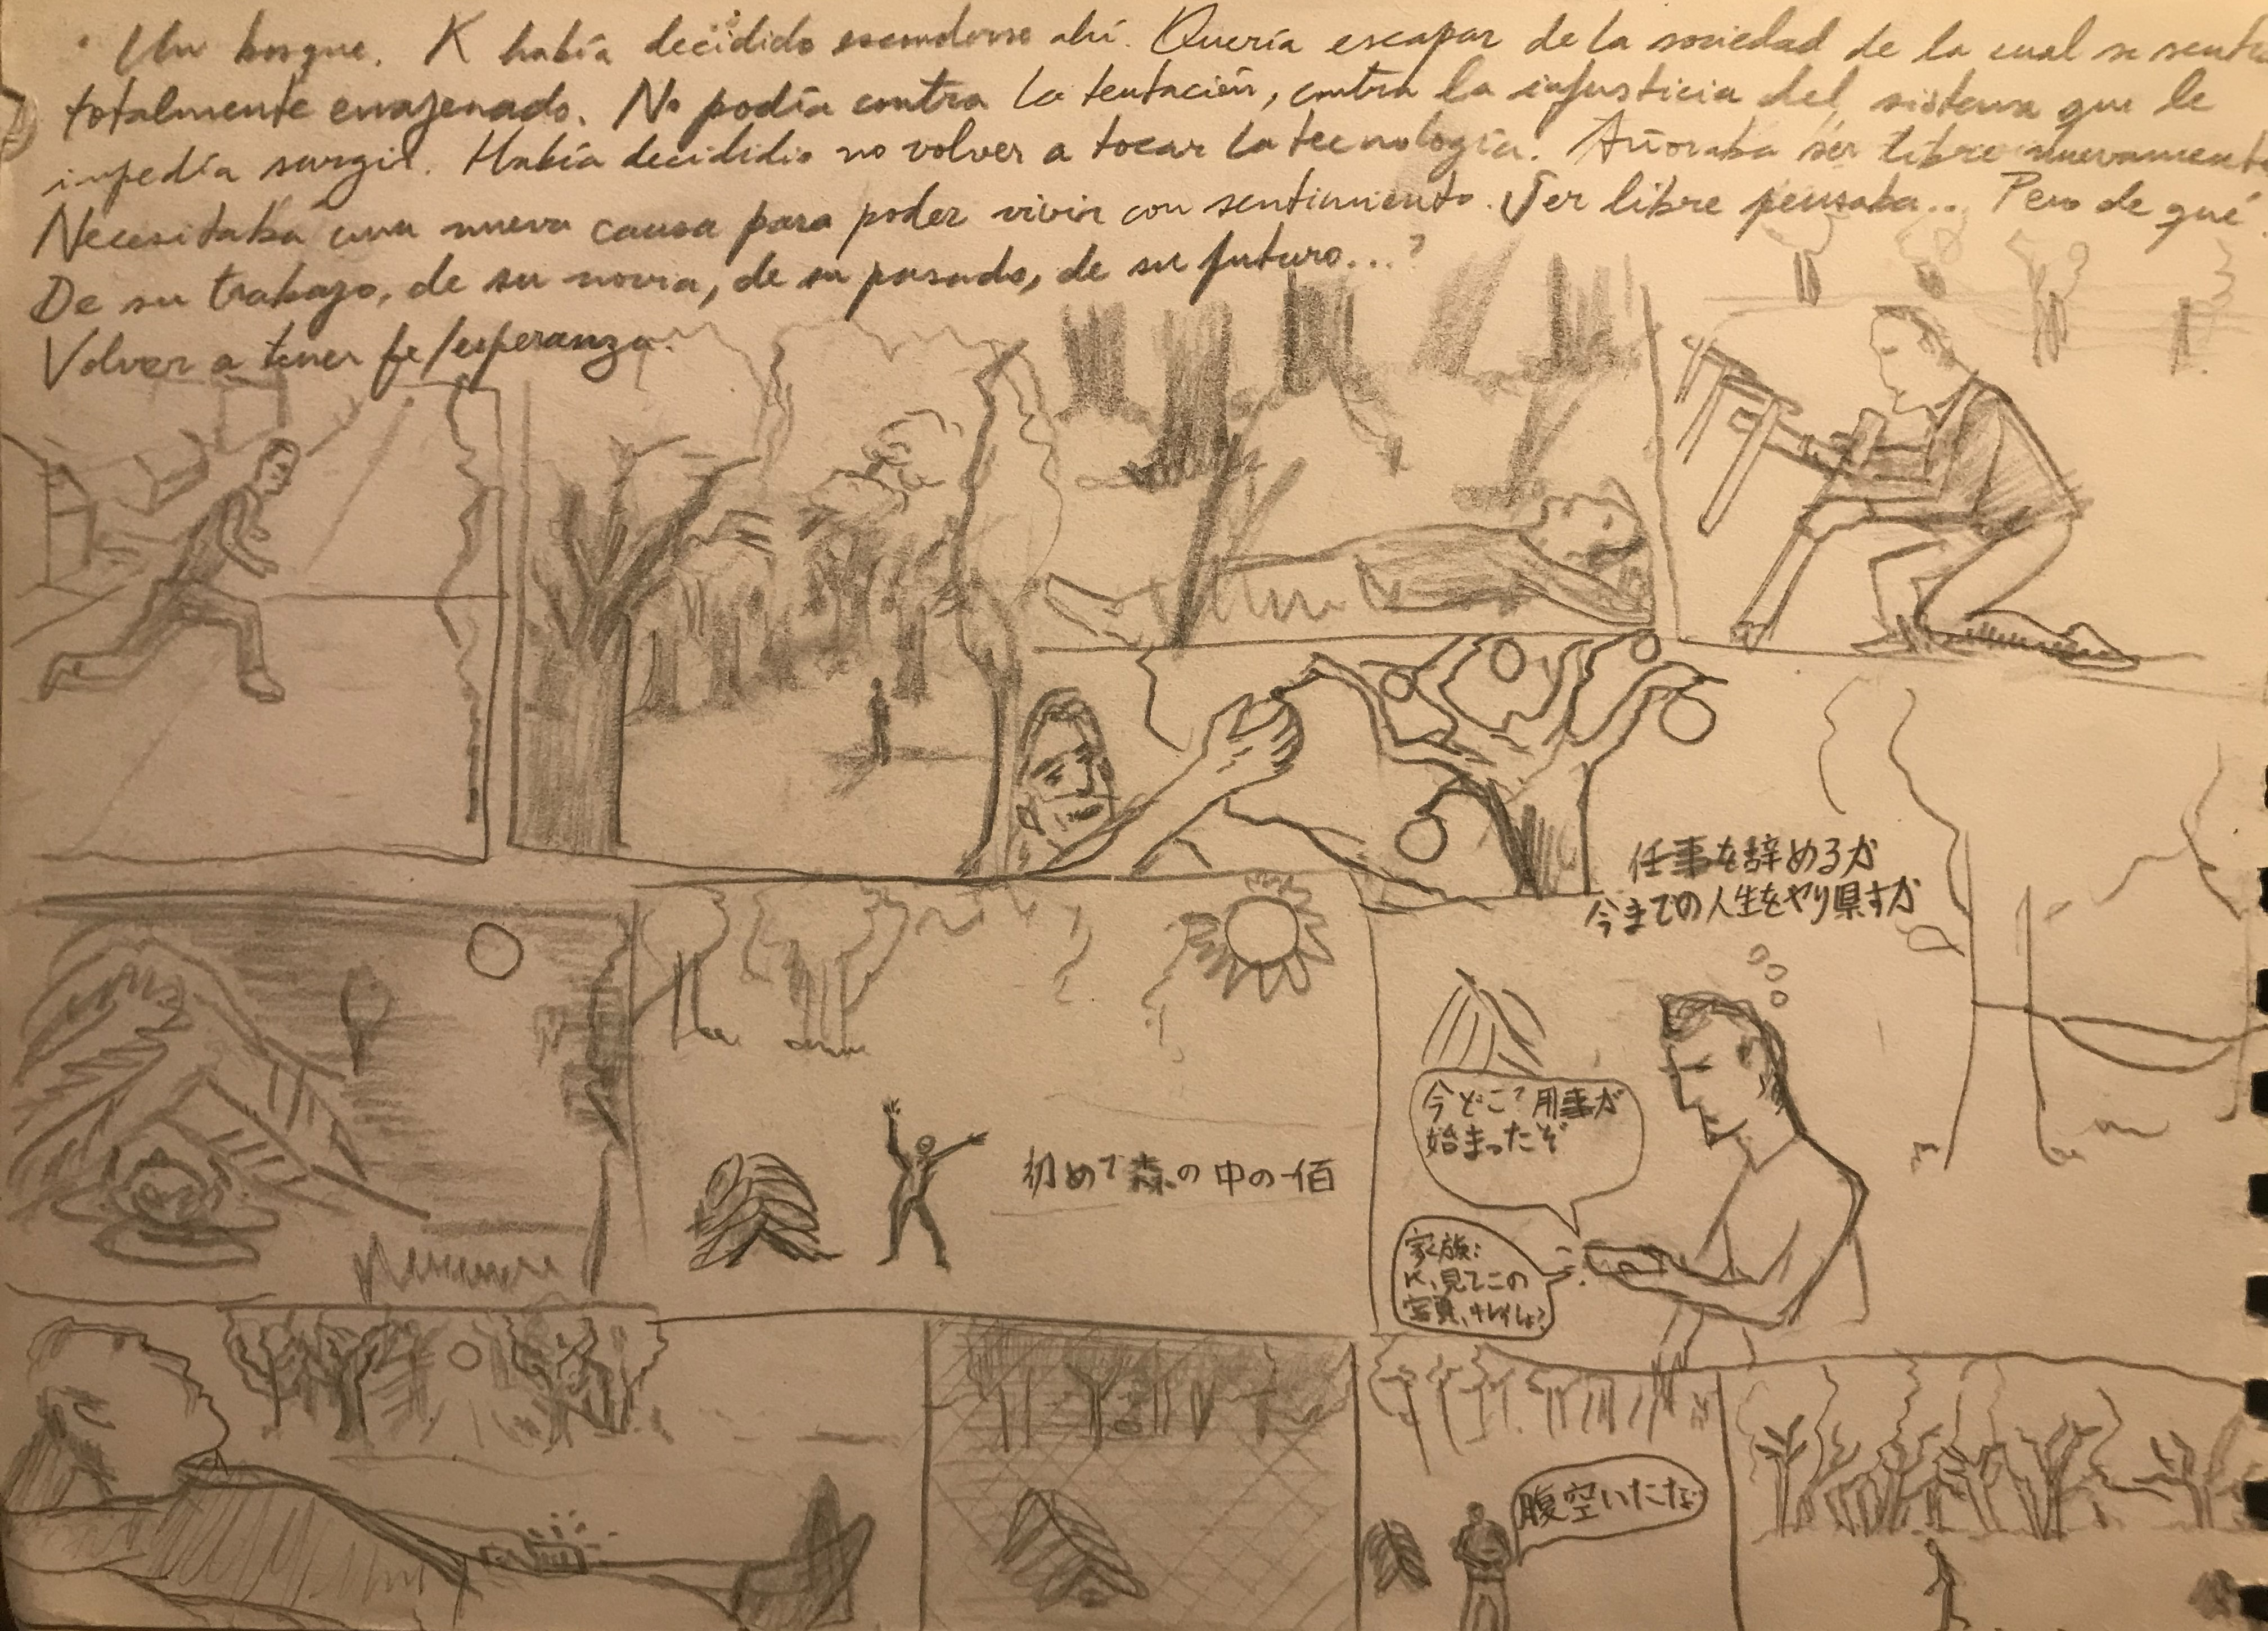 Un bosque. K había decidido esconderse ahí. Quería escapar de la sociedad de la cual se
totalmente enajenado. No podía contra la tentación, contra la injusticia del sistema que le
impedía surgir. Había decididio no volver a tocar la tecnología. Añoraba ser libre nuevamente
Necesitaba una nueva causa para poder vivir con sentimiento. Ser libre pensaba... Pero de qué
De su trabajo, de su novia, de su pasado, de su futuro...?
Volver a tener fe/esperanza.
任事を辞めるか
今までの人生をやり県すか
初めて森の中の一佰
今どこ?用事が
始まったぞ
家族:
K、見てこの
写真、キレイしょ?
腹空いたな